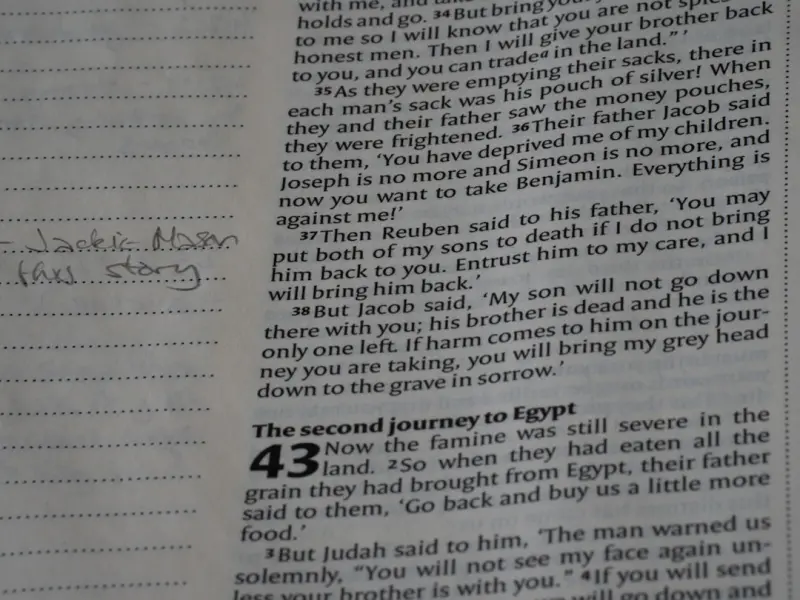 - Jackie Mason
this story
with me, and take
holds and go. 34 But bring your
to me so I will know that you are not spies
honest men. Then I will give your brother back
to you, and you can trade a in the land." '
35 As they were emptying their sacks, there in
each man's sack was his pouch of silver! When
they and their father saw the money pouches,
they were frightened. 36 Their father Jacob said
to them, 'You have deprived me of my children.
Joseph is no more and Simeon is no more, and
now you want to take Benjamin. Everything is
against me!'
37 Then Reuben said to his father, 'You may
put both of my sons to death if I do not bring
him back to you. Entrust him to my care, and I
will bring him back.'
38 But Jacob said, 'My son will not go down
there with you; his brother is dead and he is the
only one left. If harm comes to him on the jour-
ney you are taking, you will bring my grey head
down to the grave in sorrow.'
The second journey to Egypt
43 Now the famine was still severe in the
land. 2 So when they had eaten all the
grain they had brought from Egypt, their father
said to them, 'Go back and buy us a little more
food.'
3 But Judah said to him, 'The man warned us
solemnly, "You will not see my face again un-
less your brother is with you." 4 If you will send
will go down and